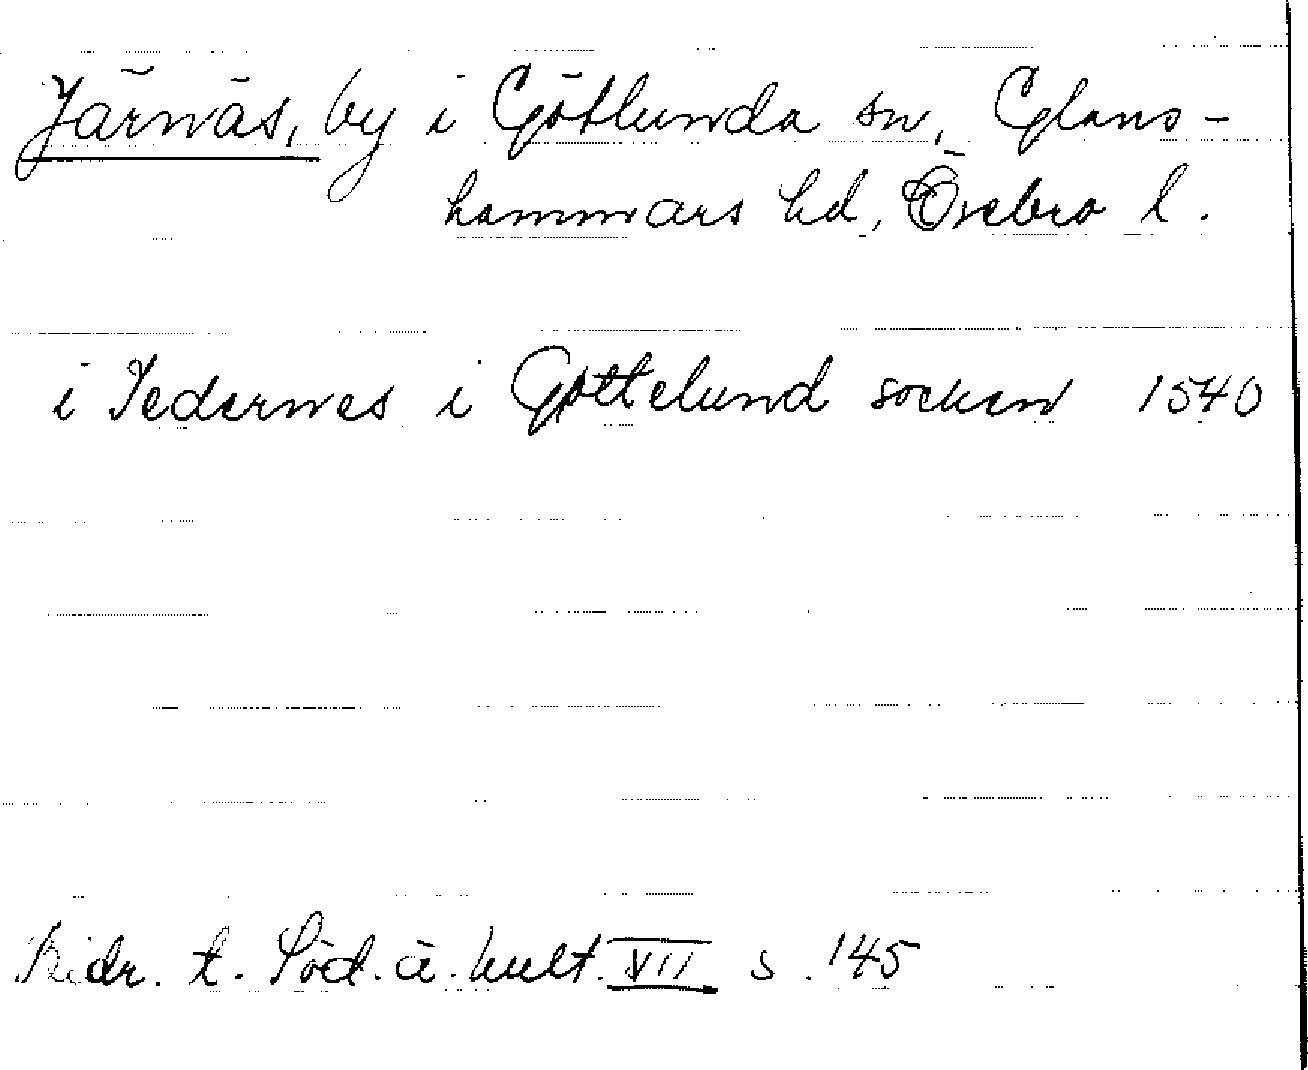 Järnäs, by i Götlunda sn, Glans-
hammars hd, Örebro l.
i Iedernes i Gottelund socken 1540
Bidr. t. Söd. ä. kult. VII s. 145